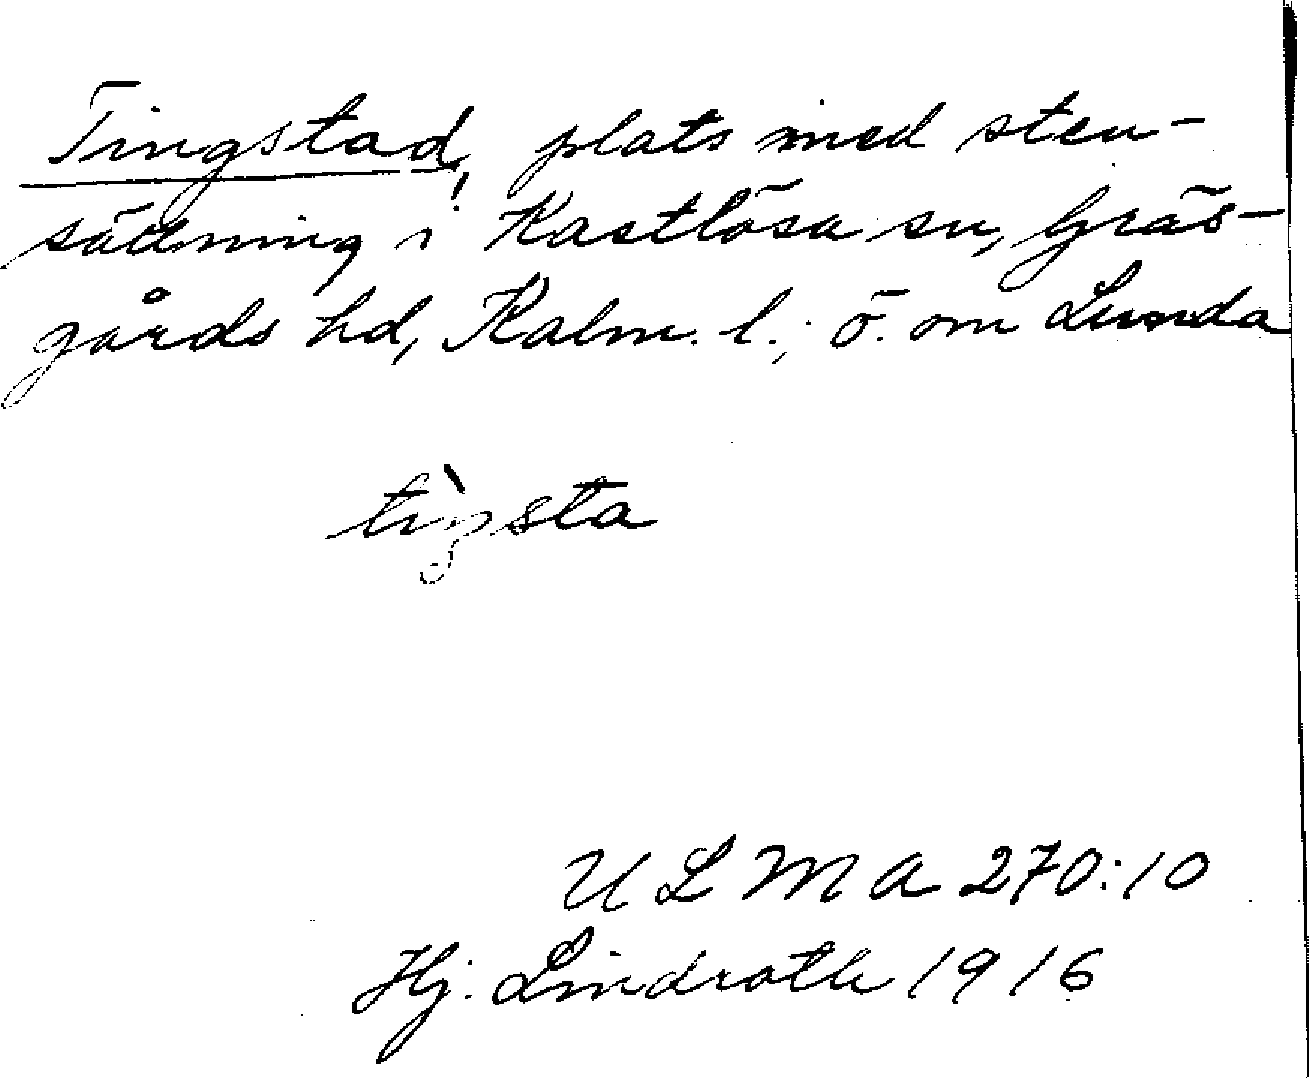 Tingstad, plats med sten-
sättning i Kastlösa sn, Gräs-
gårds hd, Kalm. l.; ö. om Lunda
tìŋsta
ULMA 270:10
Hj. Lindroth 1916